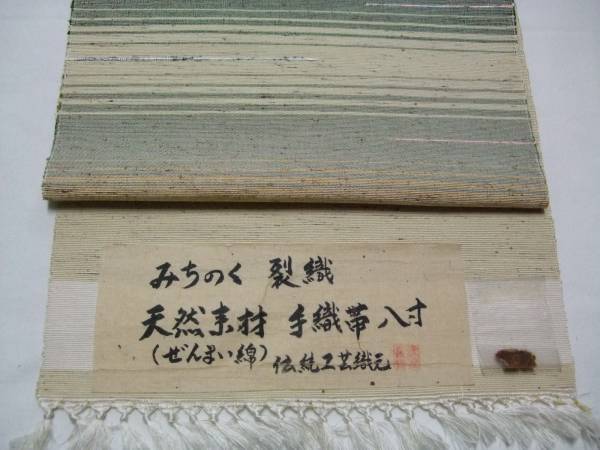 みちのく 裂織
天然素材 手織帯八寸
(ぜんまい綿) 伝統工芸織元